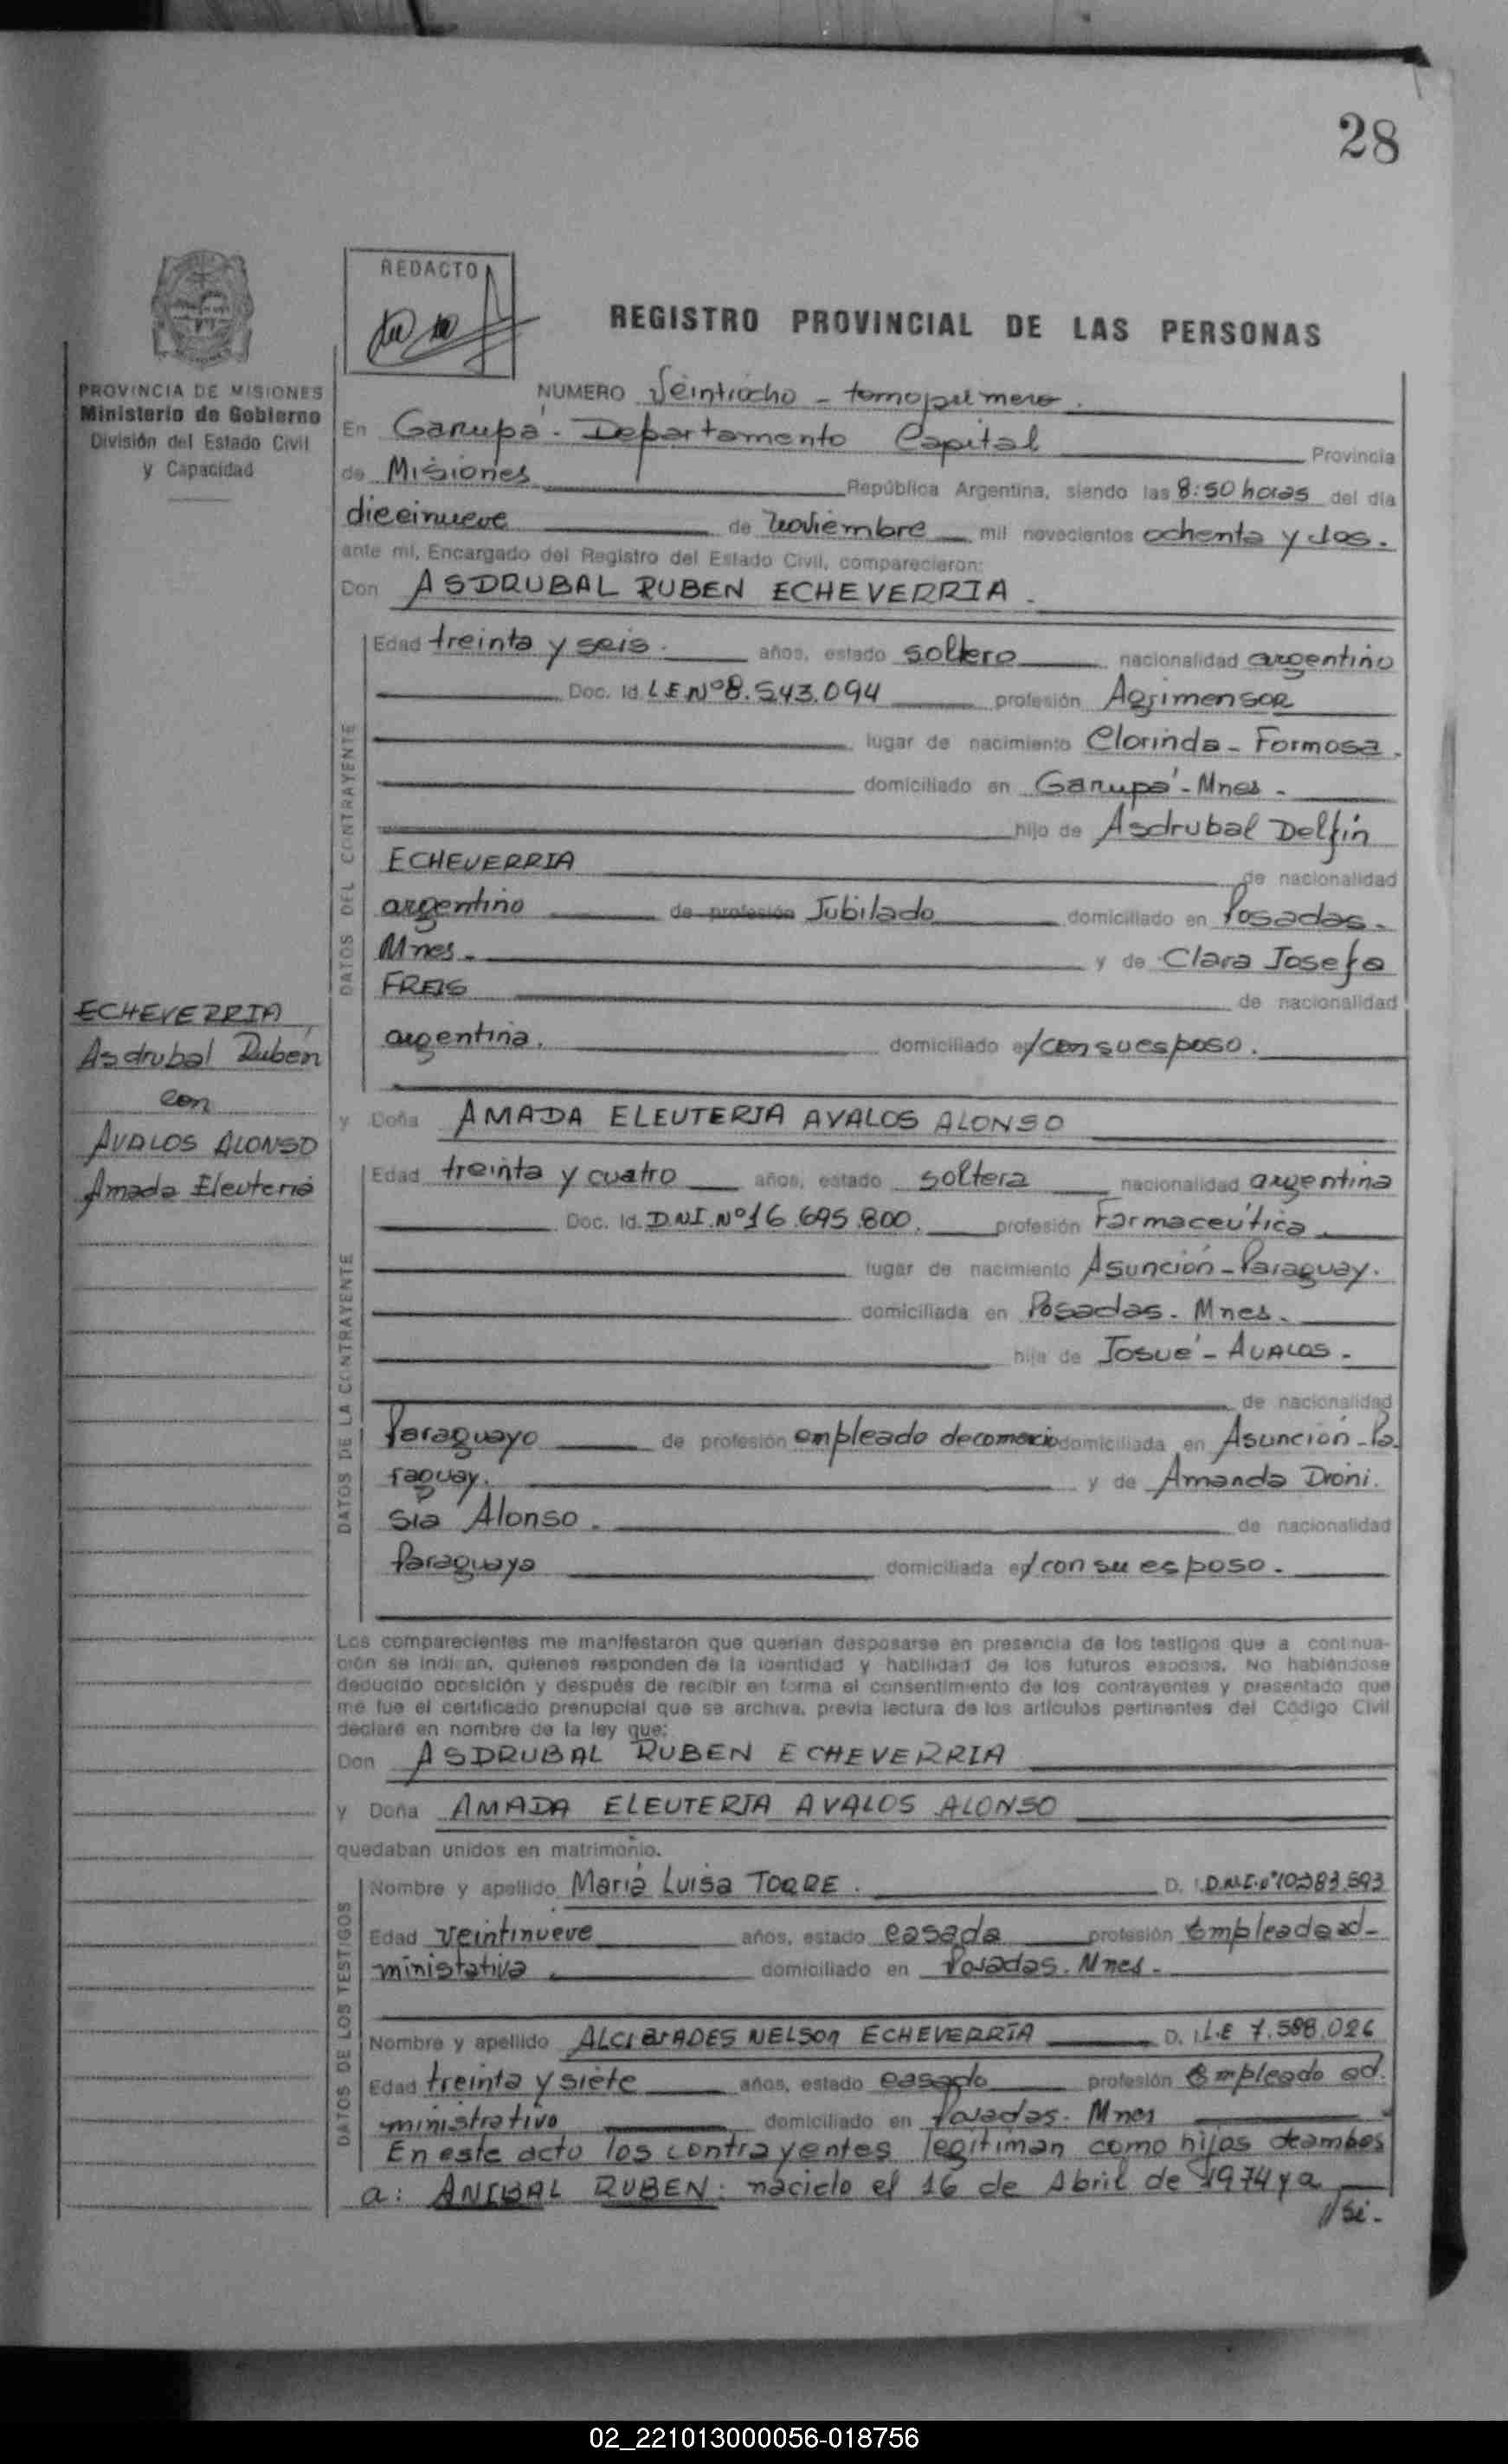 28
REDACTO
REGISTRO PROVINCIAL DE LAS PERSONAS
PROVINCIA DE MISIONES
Ministerio de Gobierno
División del Estado Civil
y Capacidad
NUMERO Veintiocho - tomo primero.
En Garupá - Departamento Capital Provincia
de Misiones República Argentina, siendo las 8:50 horas del día
diecinueve de noviembre mil novecientos ochenta y dos.
ante mí, Encargado del Registro del Estado Civil, comparecieron:
Don ASDRUBAL RUBEN ECHEVERRIA.
DATOS DEL CONTRAYENTE
Edad treinta y seis. años, estado soltero nacionalidad argentino
Doc. Id. L.E.Nº8.543.094 profesión Agrimensor
lugar de nacimiento Clorinda - Formosa.
domiciliado en Garupá - Mnes.
hijo de Asdrubal Delfín
ECHEVERRIA de nacionalidad
argentino de profesión Jubilado domiciliado en Posadas.
Mnes. y de Clara Josefa
FREIS de nacionalidad
argentina. domiciliado en/con su esposo.
ECHEVERRIA
Asdrubal Rubén
con
AVALOS ALONSO
Amada Eleuteria
y Doña AMADA ELEUTERIA AVALOS ALONSO
DATOS DE LA CONTRAYENTE
Edad treinta y cuatro años, estado soltera nacionalidad argentina
Doc. Id. D.N.I.Nº16.695.800. profesión Farmaceútica
lugar de nacimiento Asunción - Paraguay.
domiciliada en Posadas. Mnes.
hija de Josué - AVALOS -
de nacionalidad
Paraguayo de profesión empleado de comercio domiciliada en Asunción - Pa
raguay. y de Amanda Dioni.
sia Alonso. de nacionalidad
Paraguaya domiciliada en/con su esposo.
Los comparecientes me manifestaron que querían desposarse en presencia de los testigos que a continua-
ción se indican, quienes responden de la identidad y habilidad de los futuros esposos. No habiéndose
deducido oposición y después de recibir en forma el consentimiento de los contrayentes y presentado que
me fue el certificado prenupcial que se archiva, previa lectura de los artículos pertinentes del Código Civil
declaré en nombre de la ley que:
Don ASDRUBAL RUBEN ECHEVERRIA
y Doña AMADA ELEUTERIA AVALOS ALONSO
quedaban unidos en matrimonio.
DATOS DE LOS TESTIGOS
Nombre y apellido María Luisa TORRE. D. I. D.N.I.nº10.383.593
Edad veintinueve años, estado casada profesión Empleada ad-
ministativa domiciliado en Posadas. Mnes.
Nombre y apellido ALCIBIADES NELSON ECHEVERRIA D. I. L.E 7.588.026
Edad treinta y siete años, estado casado profesión Empleado ad.
ministrativo domiciliado en Posadas. Mnes
En este acto los contrayentes legitiman como hijos de ambos
a: ANIBAL RUBEN: nacido el 16 de Abril de 1974 y a
//si.
02_221013000056-018756